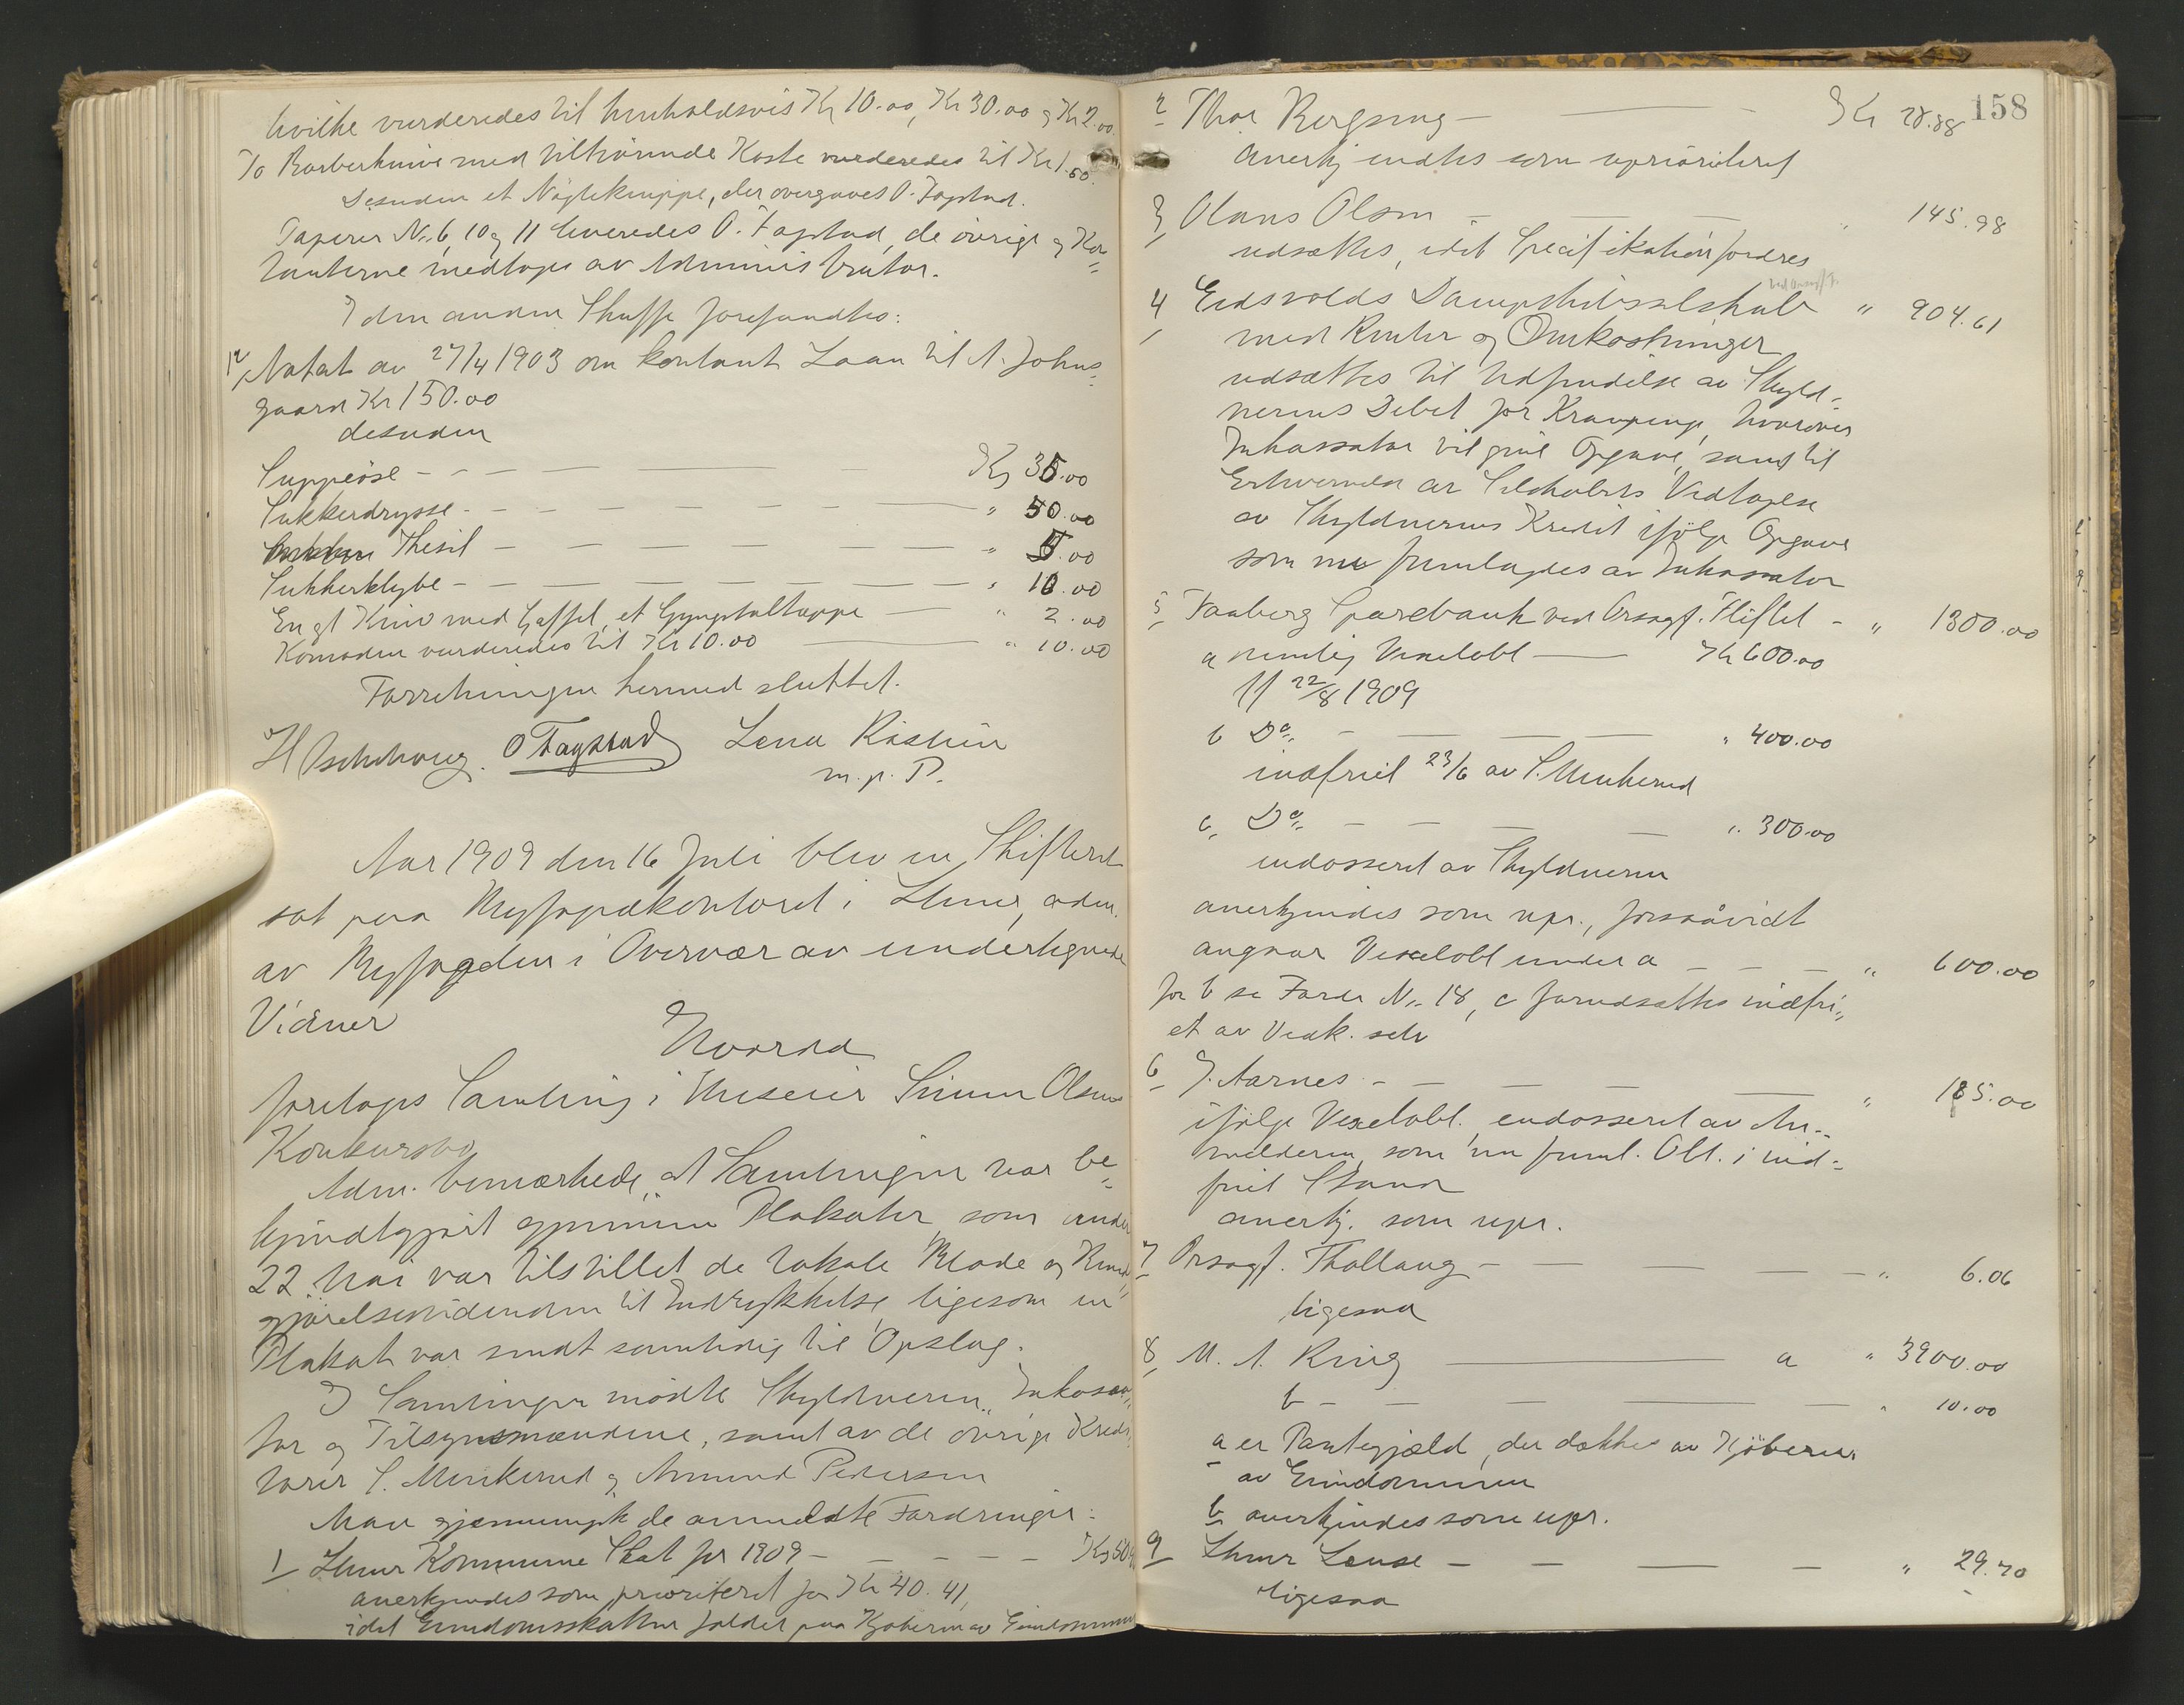 hvilke vurderedes til henholdsvis Kr 10.00, Kr 30.00 og Kr 2.00
To Barberknive med tilhörende Koste vurderedes til Kr 1.50.
Desuden et Nögleknippe, der overgaves O. Fagstad.
Papirer No. 6, 10 og 11 leveredes O. Fagstad, de övrige og Kon
tanterne medtoges av Administrator.
I den anden Skuffe forefandtes:
12, Notat av 27/4 1903 om kontant Laan til A. Johns
gaard Kr 150.00
desuden
Suppeöse - - - Kr 35.00
Sukkerdrysse - - - " 50.00
Thesil - - - " 5.00
Sukkerklype - - - " 10.00
En gl Kniv med Gaffel, et
Komoden vurderedes til Kr 10.00 — " 10.00
" 2.00
Forretningen hermed sluttet.
O Fagstad Lena
m. p. P.
Aar 1909 den 16 Juli blev en Skifteret
sat paa Byfogedkontoret i adm.
av Byfogden i Overvær av undertegnede
Vidner
Hvorda
foretoges Samling i Simen Olsens
Konkursbo
Adm. bemærkede, at Samlingen var be
kjendtgjort gjennem Plakater som under
22 Mai var tilstillet de lokale Blade og Kund
gjörelsestidenden til Indrykkelse, ligesom en
Plakat var sendt samtidig til Opslag.
I Samlingen mödte Skyldneren, Inkassa
tor og Tilsynsmændene, samt av de övrige Kredi
torer S. Menkerud og Amund Pedersen
Man gjennemgik de anmeldte Fordringer:
1 Kommune Skat for 1909 - - - Kr
anerkjendes som prioriteret for Kr 40.41,
idet Eiendomsskatten falder paa Kjöberen av Eiendommen
158
2 Thor Kr 28.88
anerkjendtes som uprioriteret
3, Olaus Olsen - - - " 145.98
udsættes, idet Specifikation fordres
4 Eidsvolds Dampskibsselskab " 904.61
med Renter og Omkostninger
udsættes til Udfindelse av Skyld-
nerens Debet for hvorover
Inkassator vil give Opgave, samt til
av Selskabets Vedtagelse
av Skyldnerens Kredit ifölge Opgave
som nu fremlagdes av Inkassator
5 Faaberg Sparebank ved Orsagf. - " 1300.00
a nemlig Vexelobl — Kr 600.00
ff 22/8 1909
b Do. - - - " 400.00
indfriet 23/6 av S. Menkerud
c, Do. - - - " 300.00
endosseret av Skyldneren
anerkjendes som upr., forsaavidt
angaar Vexelobl under a - - - " 600.00
for b se Fordr No. 18, c forudsættes indfri-
et av Vedk. selv
6 J. Aarnes - - - " 185.00
ifölge Vexelobl. endosseret av An-
melderen, som nu freml. Obl. i ind-
friet Stand
anerkj. som upr.
7 Orsagf. Thallaug - - - " 6.06
ligesaa
8, M. A. Ring — a " 3900.00
b - - - " 10.00
a er Pantegjæld, der dækkes av Kjöberen
av Eiendommen
b anerkjendes som upr.
9 - - - " 29.70
ligesaa